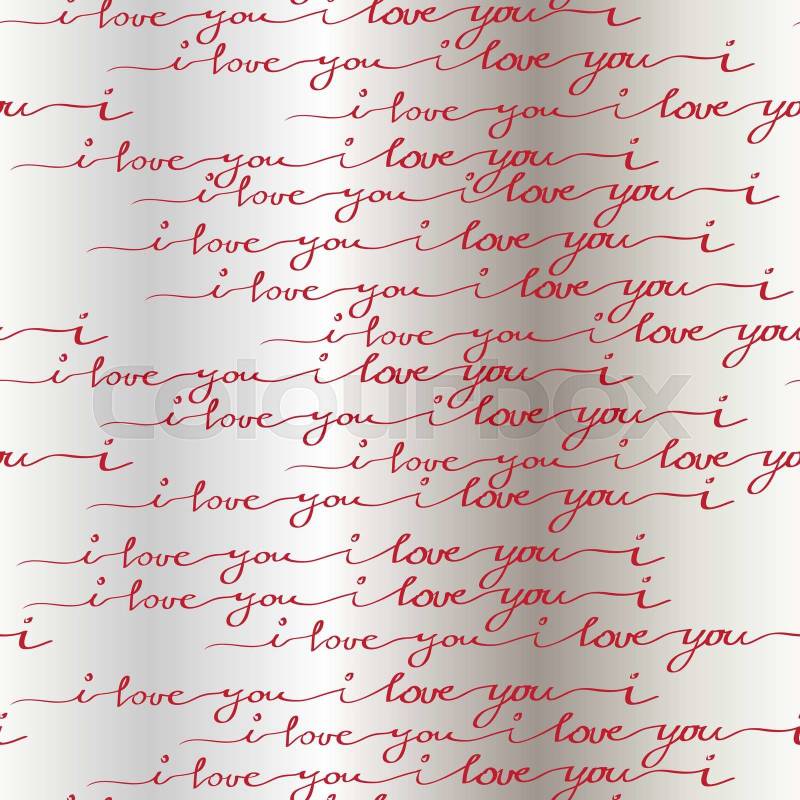 i love you i love you i
i love you i love you i
ou i i love you i love yo
i love you i love you i
i love you i love you i
i love you i love you i
i love you i love you i
i i love you i love you
i love you i love you i
colourbox
i love you i love you i
ou i i love you i love yo
i love you i love you i
i love you i love you i
i love you i love you i
i i love you i love you
i love you i love you i
i love you i love you i
i love you i love you i